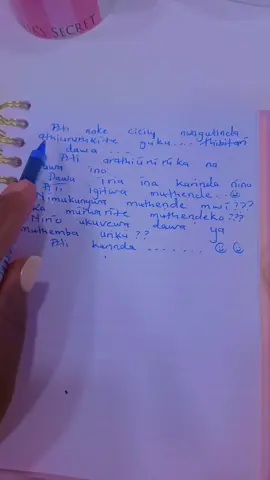 S SECRET
Ati noke cicily nwigutinda
athiururukite guku.... thibitari
dawa ...
Ati arathiũrũrũka na
dawa ino
Dawa iria ina karinda ninu
Ati igitwa muthende..
Nimukunywa muthende mwi???
Ka mũtharite muthendeko???
Ninu ukuvewa dawa ya
muthemba uriku??
Ati karinda .......